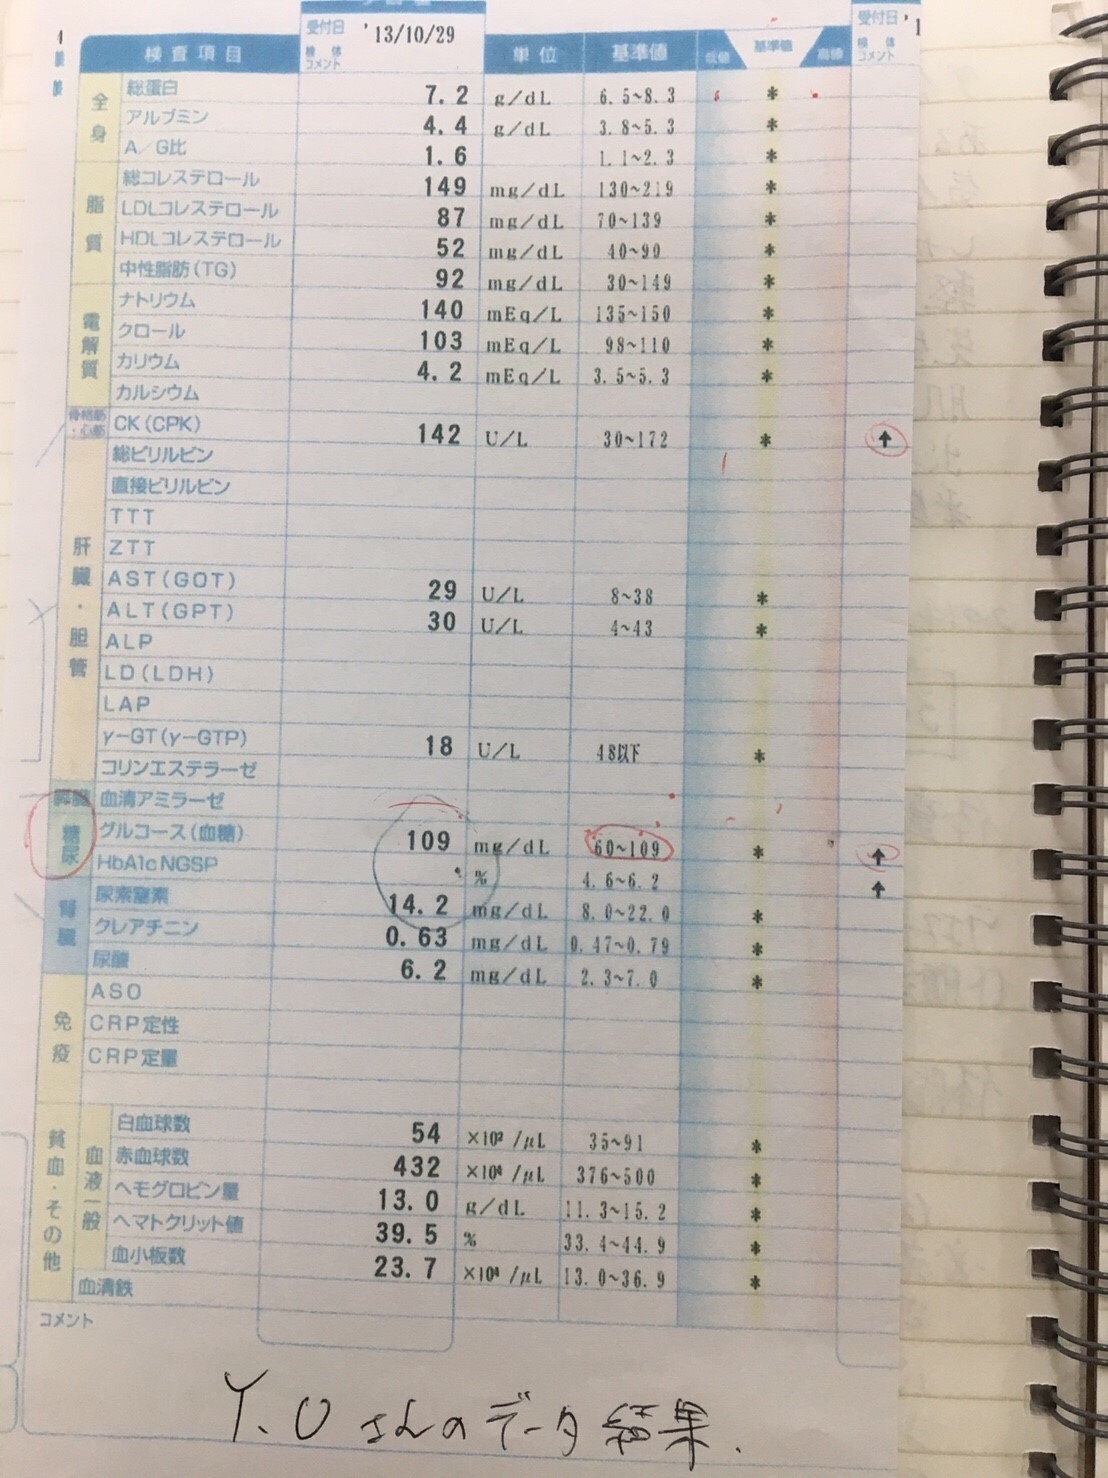 受付日 '13/10/29 受付日
検体コメント 検体コメント
検査項目 単位 基準値 低値 基準値 高値
全身
総蛋白 7.2 g/dL 6.5~8.3 *
アルブミン 4.4 g/dL 3.8~5.3 *
A/G比 1.6 1.1~2.3 *
脂質
総コレステロール 149 mg/dL 130~219 *
LDLコレステロール 87 mg/dL 70~139 *
HDLコレステロール 52 mg/dL 40~90 *
中性脂肪(TG) 92 mg/dL 30~149 *
電解質
ナトリウム 140 mEq/L 135~150 *
クロール 103 mEq/L 98~110 *
カリウム 4.2 mEq/L 3.5~5.3 *
カルシウム
骨格筋・心筋
CK(CPK) 142 U/L 30~172 * ↑
肝臓・胆管
総ビリルビン
直接ビリルビン
TTT
ZTT
AST(GOT) 29 U/L 8~38 *
ALT(GPT) 30 U/L 4~43 *
ALP
LD(LDH)
LAP
γ-GT(γ-GTP) 18 U/L 48以下 *
コリンエステラーゼ
血清アミラーゼ
糖尿
グルコース(血糖) 109 mg/dL 60~109 * ↑
HbA1c NGSP % 4.6~6.2 ↑
腎臓
尿素窒素 14.2 mg/dL 8.0~22.0 *
クレアチニン 0.63 mg/dL 0.47~0.79 *
尿酸 6.2 mg/dL 2.3~7.0 *
免疫
ASO
CRP定性
CRP定量
貧血・その他
血液一般
白血球数 54 ×10² /μL 35~91 *
赤血球数 432 ×10⁴ /μL 376~500 *
ヘモグロビン量 13.0 g/dL 11.3~15.2 *
ヘマトクリット値 39.5 % 33.4~44.9 *
血小板数 23.7 ×10⁴ /μL 13.0~36.9 *
血清鉄
コメント
Y.Uさんのデータ結果.